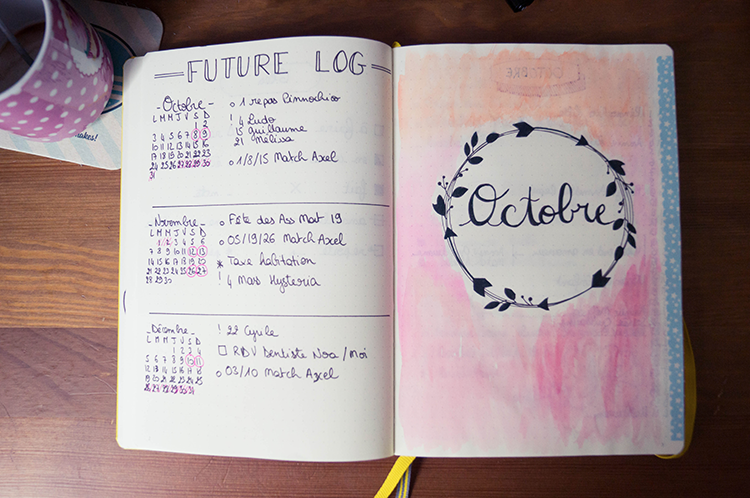 FUTURE LOG
- Octobre -
L M M J V S D
1 2
3 4 5 6 7 8 9
10 11 12 13 14 15 16
17 18 19 20 21 22 23
24 25 26 27 28 29 30
31
o 1 repas Pinnochio
! 4 Ludo
15 Guillaume
21 Mélissa
o 1/8/15 Match Axel
- Novembre -
L M M J V S D
1 2 3 4 5 6
7 8 9 10 11 12 13
14 15 16 17 18 19 20
21 22 23 24 25 26 27
28 29 30
o Fête des Ass Mat 19
o 05/19/26 Match Axel
* Taxe habitation
! 4 Mass Hysteria
- Décembre -
L M M J V S D
1 2 3 4
5 6 7 8 9 10 11
12 13 14 15 16 17 18
19 20 21 22 23 24 25
26 27 28 29 30 31
! 22 Cyrile
□ RDV Dentiste Noa / Moi
o 03/10 Match Axel
Octobre